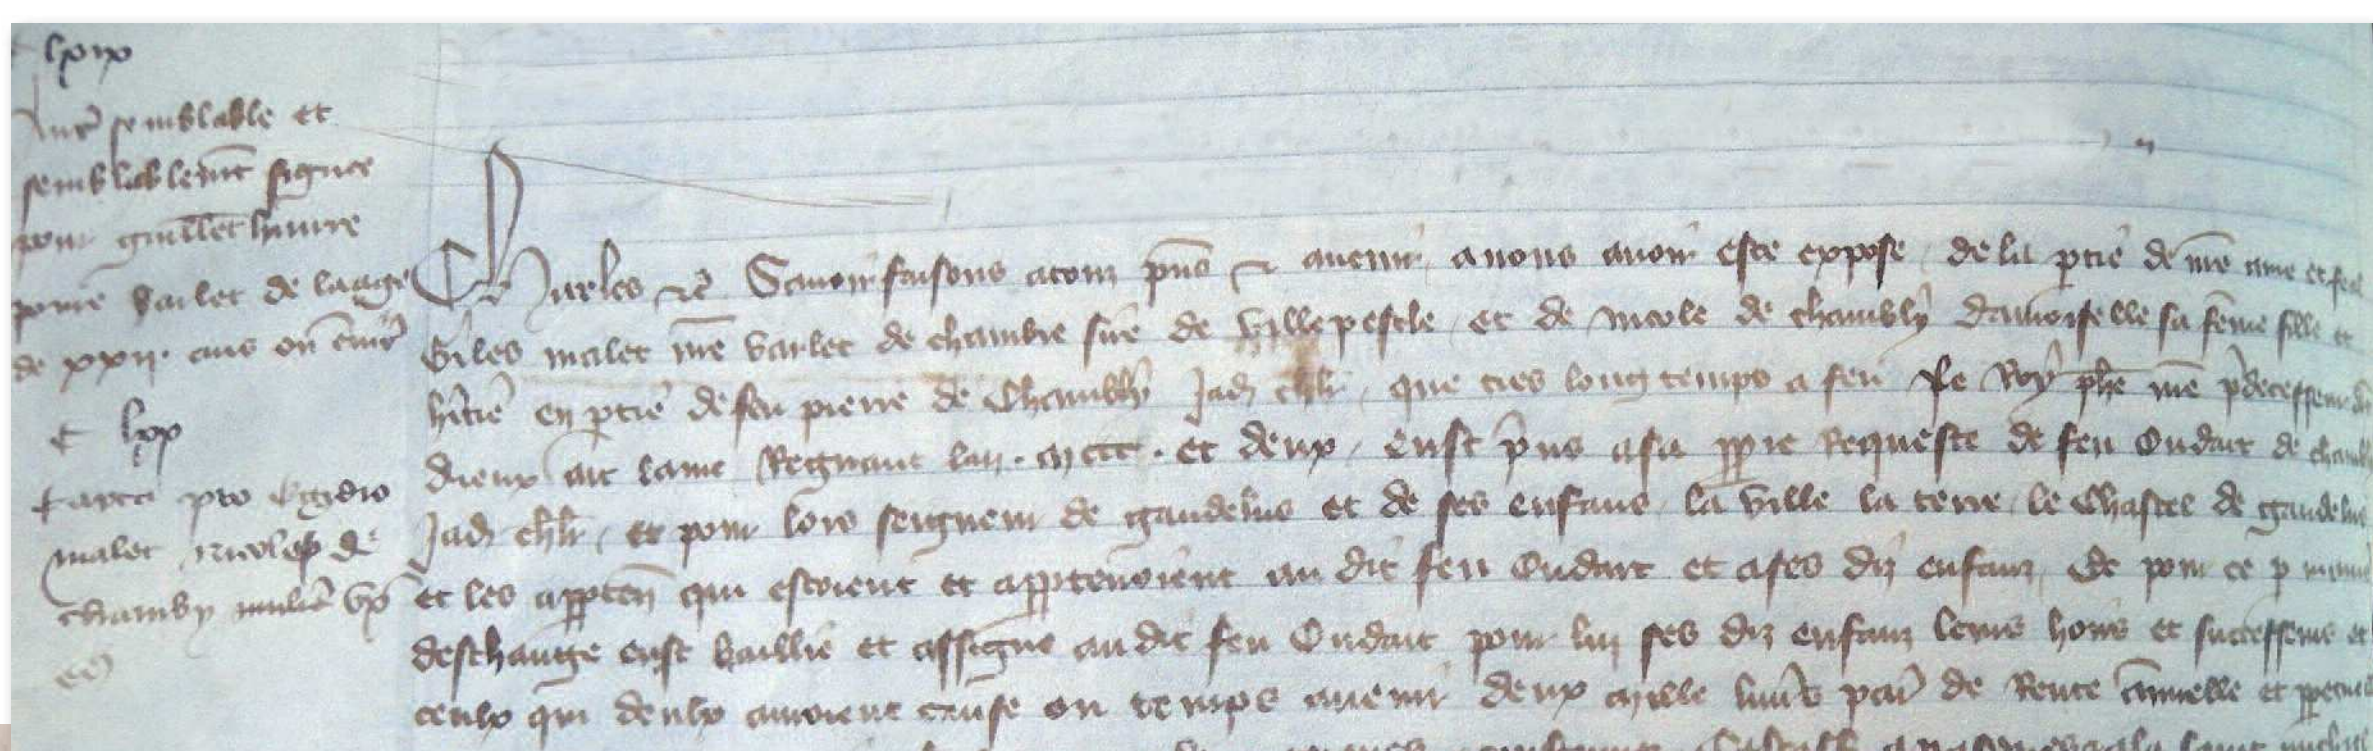 lxix
Autre semblable et
semblablemt signee
pour guillet huure
poure varlet de laage
de xxii. ans ou envir
lxx
Carta pro Egidio
malet nicolep de
chamby mulie ux
ei
Charles etc Savoir faisons atouz pns et avenir avons avoir este expose de la ptie de nre ame et feal
Giles malet nre varlet de chambre sire de villepescle et de nicole de chambly damoiselle sa feme fille et
hitie en ptie de feu pierre de Chambly Jad chlr que tres long temps a feu le Roy phe nre pdecesseur
dieux ait lame Regnant lan . et deux eust pns asa ppre Requeste de feu Oudart de
Jad chlr et pour lors seigneur de gandelus et de ses enfans la ville la terre le Chastel de gandelus
et les appten qui estoient et apptenoient au dit feu Oudart et ases diz enfanz Et pour ce p
deschange eust baillie et assigne audit feu Oudart pour lui ses diz enfanz leurs hoirs et successeurs et
ceulx qui deulx auroient cause ou temps avenir deux mille livrs par de Rente annuelle et